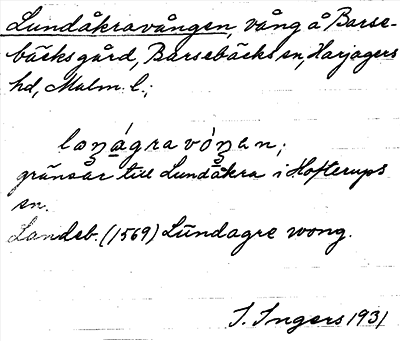 Lundåkravången, vång å Barse-
bäcksgård, Barsebäcks sn, Harjagers
hd, Malm. l.;
loŋágravóŋen;
gränsar till Lundåkra i Hofterups
sn.
Landeb. (1569) Lundagre wong.
I. Ingers 1931